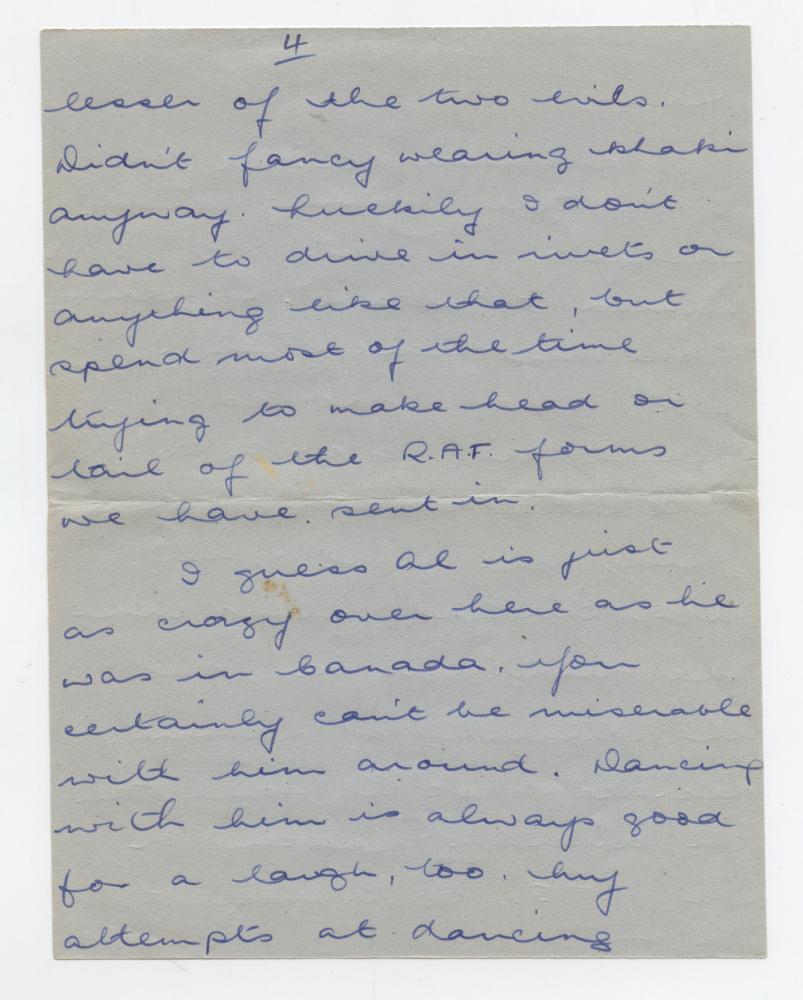 4
lesser of the two evils.
Didn't fancy wearing khaki
anyway. Luckily I don't
have to drive in rivets or
anything like that, but
spend most of the time
trying to make head or
tail of the R.A.F. forms
we have sent in.
I guess Al is just
as crazy over here as he
was in Canada. You
certainly can't be miserable
with him around. Dancing
with him is always good
for a laugh, too. My
attempts at dancing